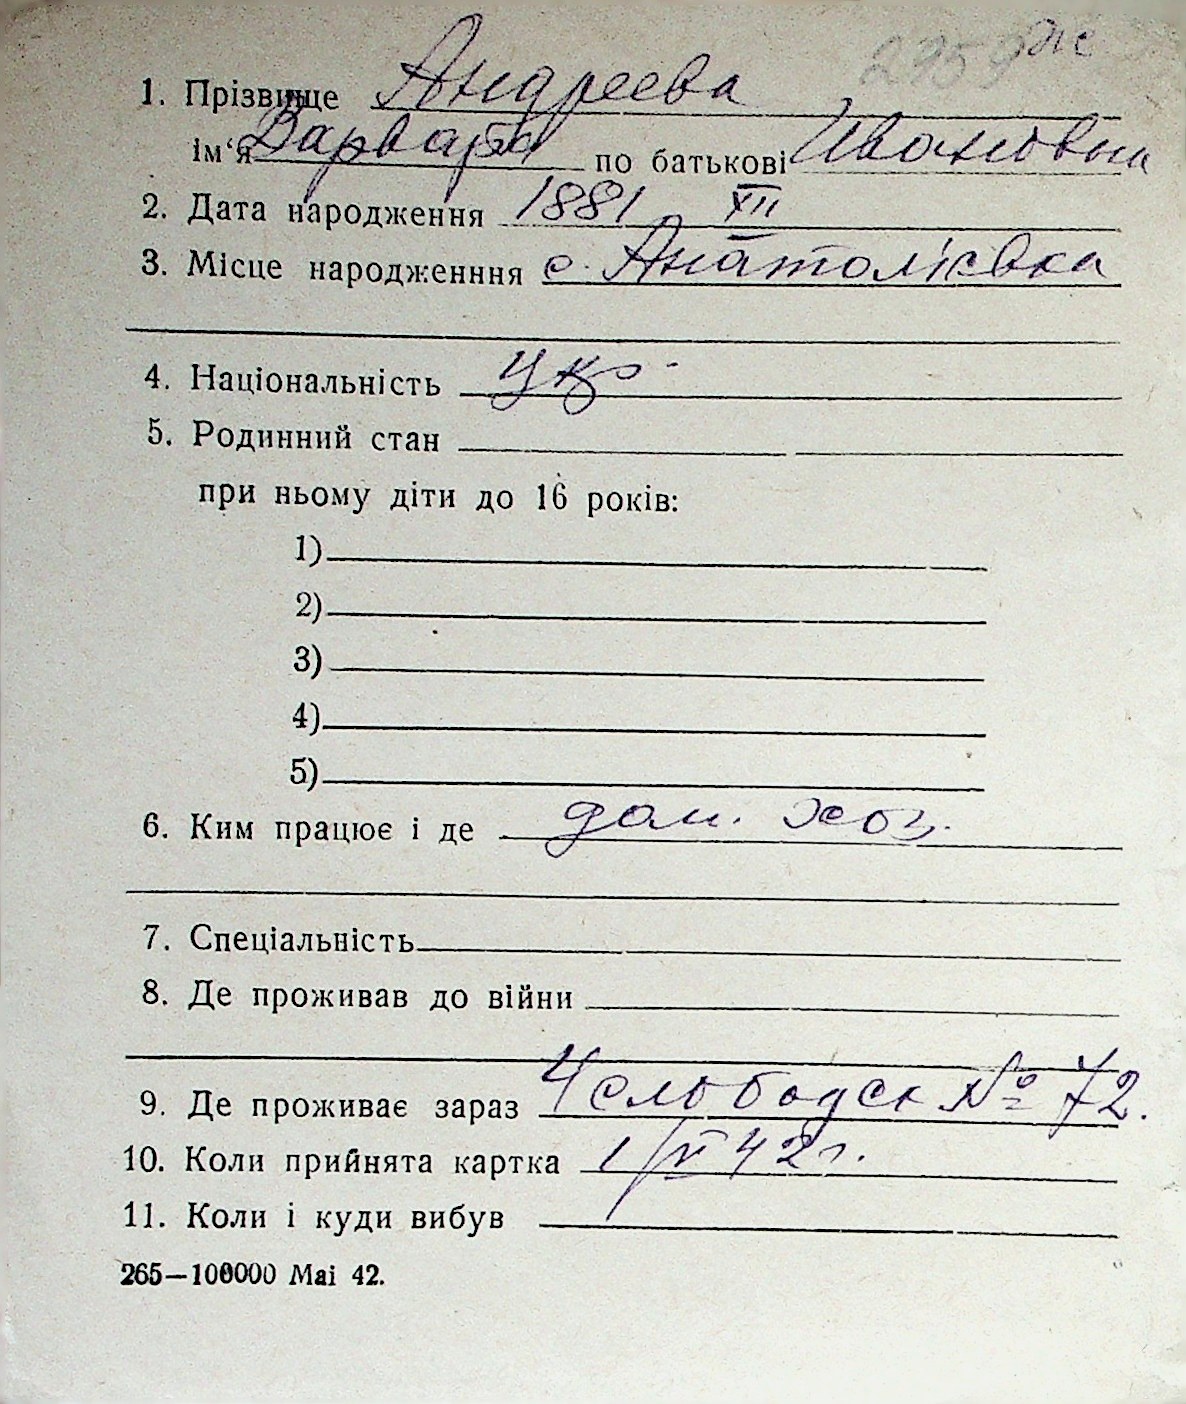 2959 же
1. Прізвище Андреева
ім‘я Варвара по батькові Ивановна
2. Дата народження 1881 XII
3. Місце народженння с. Анатоліевка
4. Національність укр.
5. Родинний стан
при ньому діти до 16 років:
1)
2)
3)
4)
5)
6. Ким працює і де дом. хоз.
7. Спеціальність
8. Де проживав до війни
9. Де проживає зараз 4 слободск № 72.
10. Коли прийнята картка 1/VI 42 г.
11. Коли і куди вибув
265—100000 Mai 42.